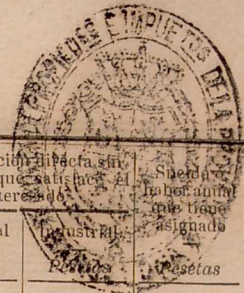 PROPIEDADES É IMPUESTOS DE LA
ción directa sin
que satisface el
teresado
Sueldo ó
haber anual
que tiene
asignado
al
Industrial
Pesetas
Pesetas